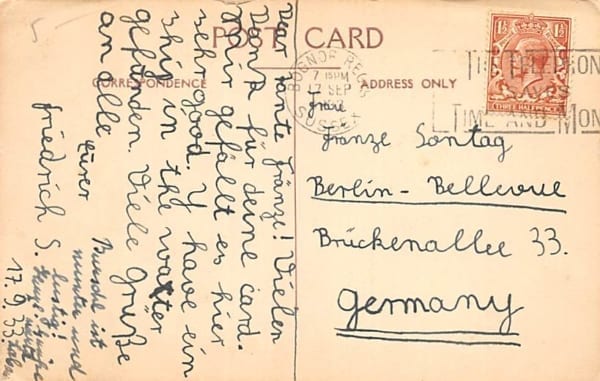 POST CARD
CORRESPONDENCE
ADDRESS ONLY
BOGNOR REGIS
7 15PM
17 SEP
SUSSEX
THE TELEPHONE
SAVES
TIME AND MON
THREE HALFPENCE
1½
1½
Dear Tante Fränze! Vielen
Dank für deine card.
Mir gefällt es hier
sehr good. Y have ein
Schif in the waxter
gefunden. Viele Grüße
an alle
Eurer
friedrich S.
17.9.33.
Buschl ist
munter und
lustig!
Frau
Franze Sontag
Berlin - Bellevue
Brückenallee 33.
Germany